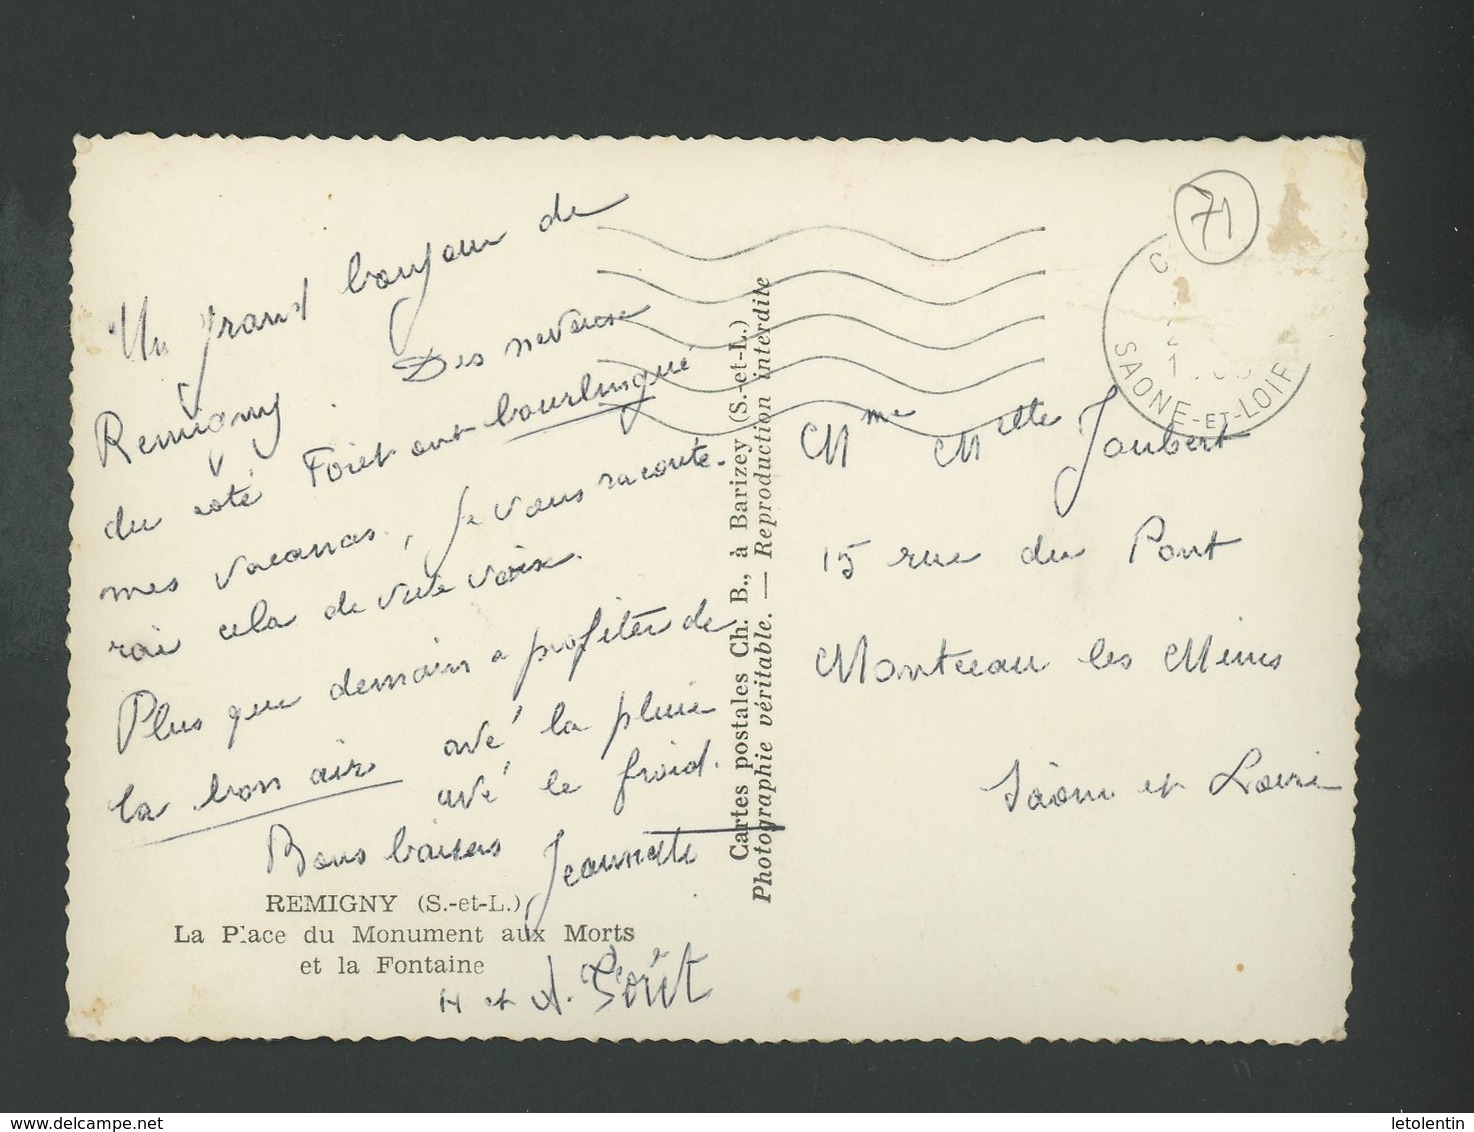 Un grand bonjour de
Remigny. Des neveuse
du coté Foret ont bourlingué
mes vacances, je vous raconte-
rai cela de vive voix.
Plus que demain a profiter de
la bon air avé la pluie
avé le froid.
Bons baisers Jeannette
H et A. Forêt
REMIGNY (S.-et-L.)
La Place du Monument aux Morts
et la Fontaine
Cartes postales Ch. B., à Barizey (S.-et-L.)
Photographie véritable. — Reproduction interdite
71
C
SAONE-ET-LOIRE
Mme Melle Joubert
15 rue du Pont
Montceau les Mines
Saône et Loire
letolentin